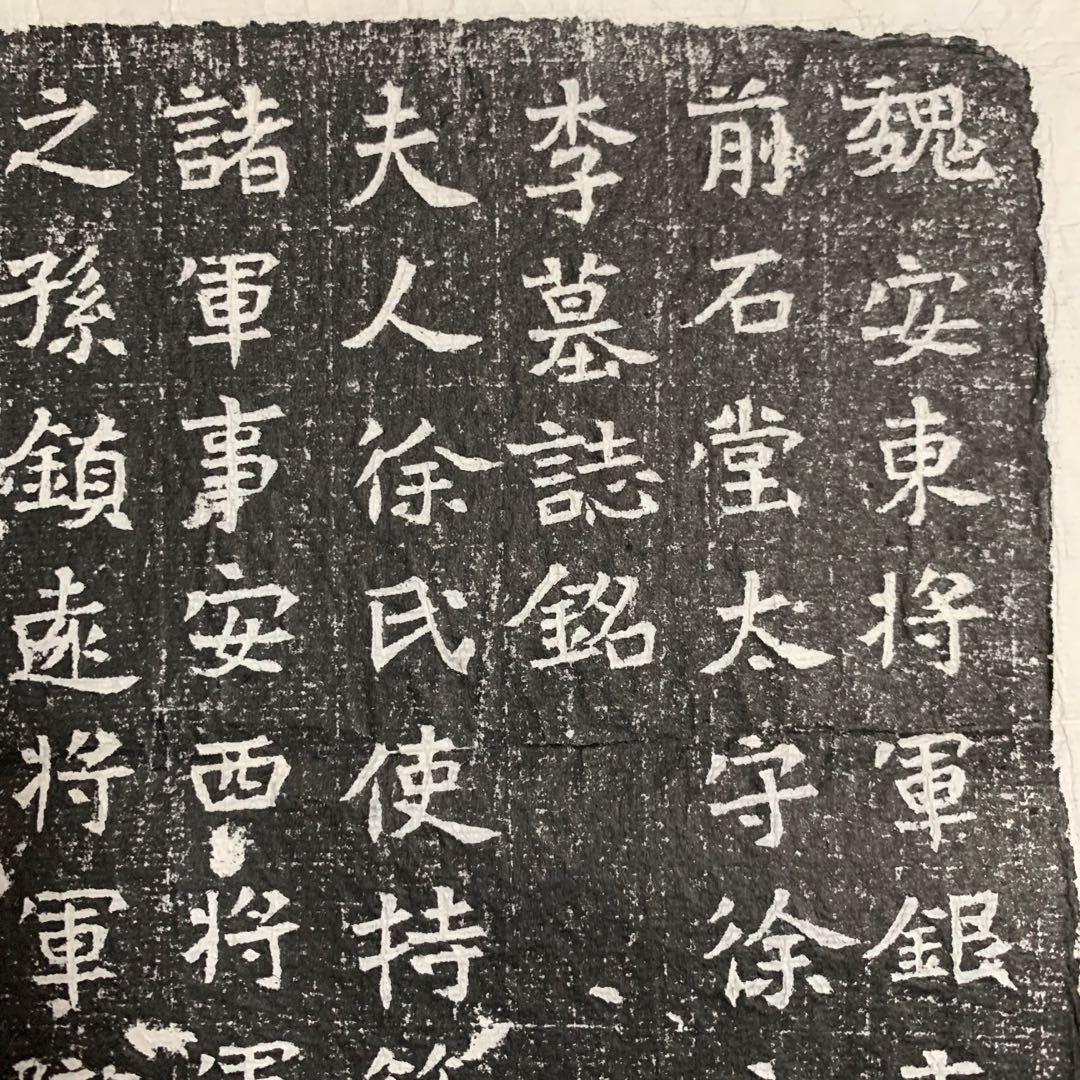 魏安東將軍銀
前石堂太守徐
李墓誌銘
夫人徐氏使持
諸軍事安西將軍
之孫鎮遠將軍